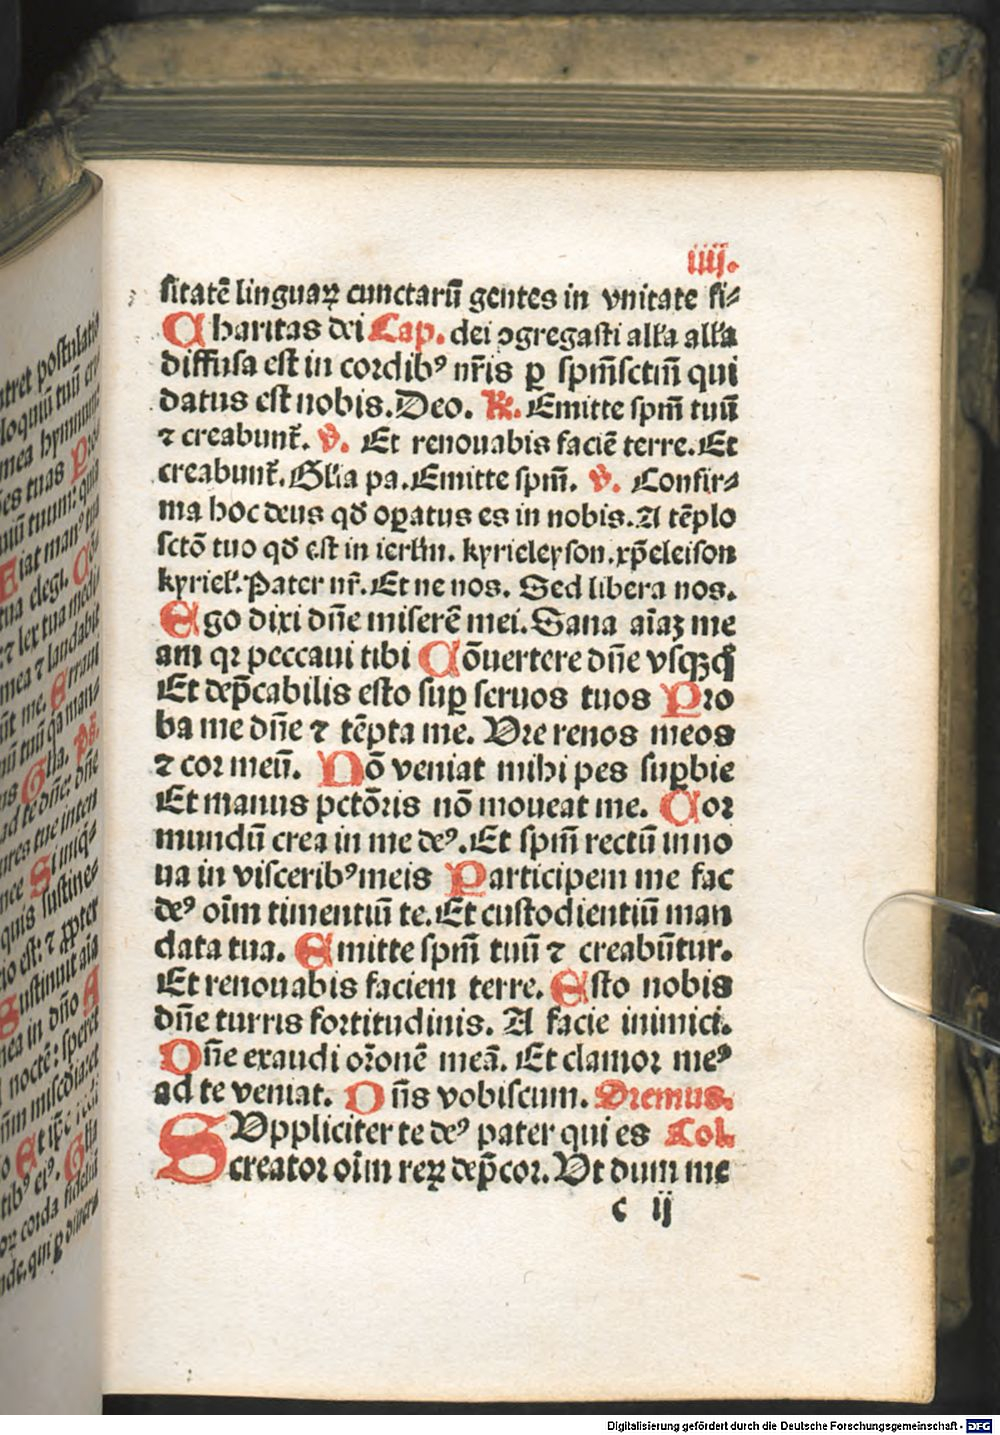 iiij.
sitatē linguaꝝ cunctarū gentes in vnitate fi⸗
Charitas dei Cap. dei ↄgregasti all'a all'a
diffusa est in cordibꝰ nr̄is ꝑ spm̄sctm̄ qui
datus est nobis. Deo. ℟. Emitte spm̄ tuū
⁊ creabunt᷑. ℣. Et renouabis faciē terre. Et
creabunt᷑. Gl'ia pa. Emitte spm̄. ℣. Confir⸗
ma hoc deus qd̄ oꝑatus es in nobis. A tēplo
sctō tuo qd̄ est in ierl'm. kyrieleyson. xp̄eleison
kyriel'. Pater nr̄. Et ne nos. Sed libera nos.
Ego dixi dn̄e miserē mei. Sana aīaꝫ me
am qꝛ peccaui tibi Cōuertere dn̄e vsqꝫq̄
Et dep̄cabilis esto suꝑ seruos tuos Pro
ba me dn̄e ⁊ tēpta me. Vre renos meos
⁊ cor meū. Nō veniat mihi pes suꝑbie
Et manus pctōris nō moueat me. Cor
mundū crea in me deꝰ. Et spm̄ rectū inno
ua in visceribꝰ meis Participem me fac
deꝰ oīm timentiū te. Et custodientiū man
data tua. Emitte spm̄ tuū ⁊ creabūtur.
Et renouabis faciem terre. Esto nobis
dn̄e turris fortitudinis. A facie inimici.
Dn̄e exaudi or̄onē meā. Et clamor meꝰ
ad te veniat. Dn̄s vobiscum. Oremus.
SVppliciter te deꝰ pater qui es Col.
creator oīm reꝝ dep̄cor. Vt dum me
c ij
Digitalisierung gefördert durch die Deutsche Forschungsgemeinschaft - DFG